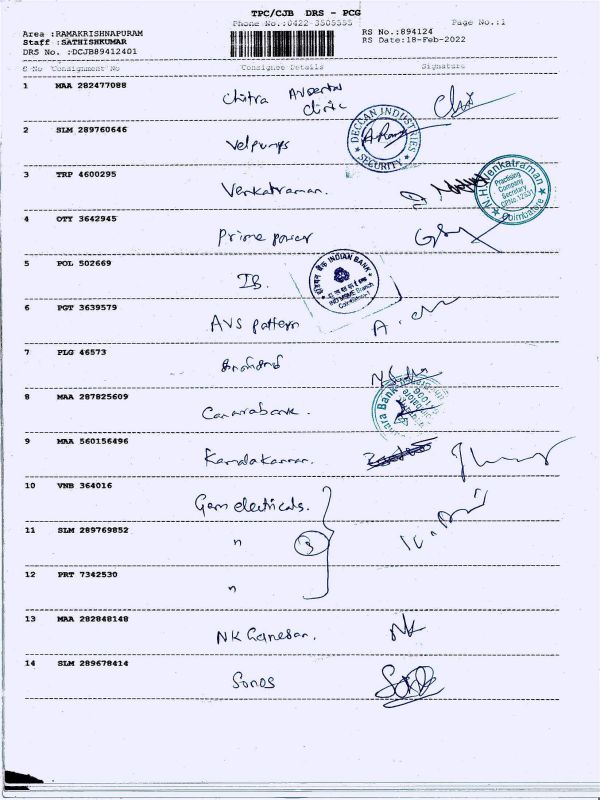 TPC/CJB DRS - PCG
Phone No.:0422-3505555
Page No.:1
Area :RAMAKRISHNAPURAM
Staff :SATHISHKUMAR
DRS No. :DCJB89412401
RS No.:894124
RS Date:18-Feb-2022
S No Consignment No Consignee Details Signature
1 MAA 282477088 Chitra
Clinic
2 SLM 289760646 Velpumps
DECCAN INDUSTRIES
★ SECURITY ★
3 TRP 4600295 Venkatraman.
N.H.Venkatraman
Practising
Company
Secretary
Coimbatore
4 OTY 3642945 Prime power
5 POL 502669 IB.
इंडियन बैंक INDIAN BANK
IND MSME Branch
Coimbatore
6 PGT 3639579 AVS pattern
7 PLG 46573
8 MAA 287825609 Canarabank.
9 MAA 560156496 Kamalakannan.
10 VNB 364016 Gem electricals.
11 SLM 289769852 " 3
12 PRT 7342530 "
13 MAA 282848148 NK Ganesan. NK
14 SLM 289678414 Sonos